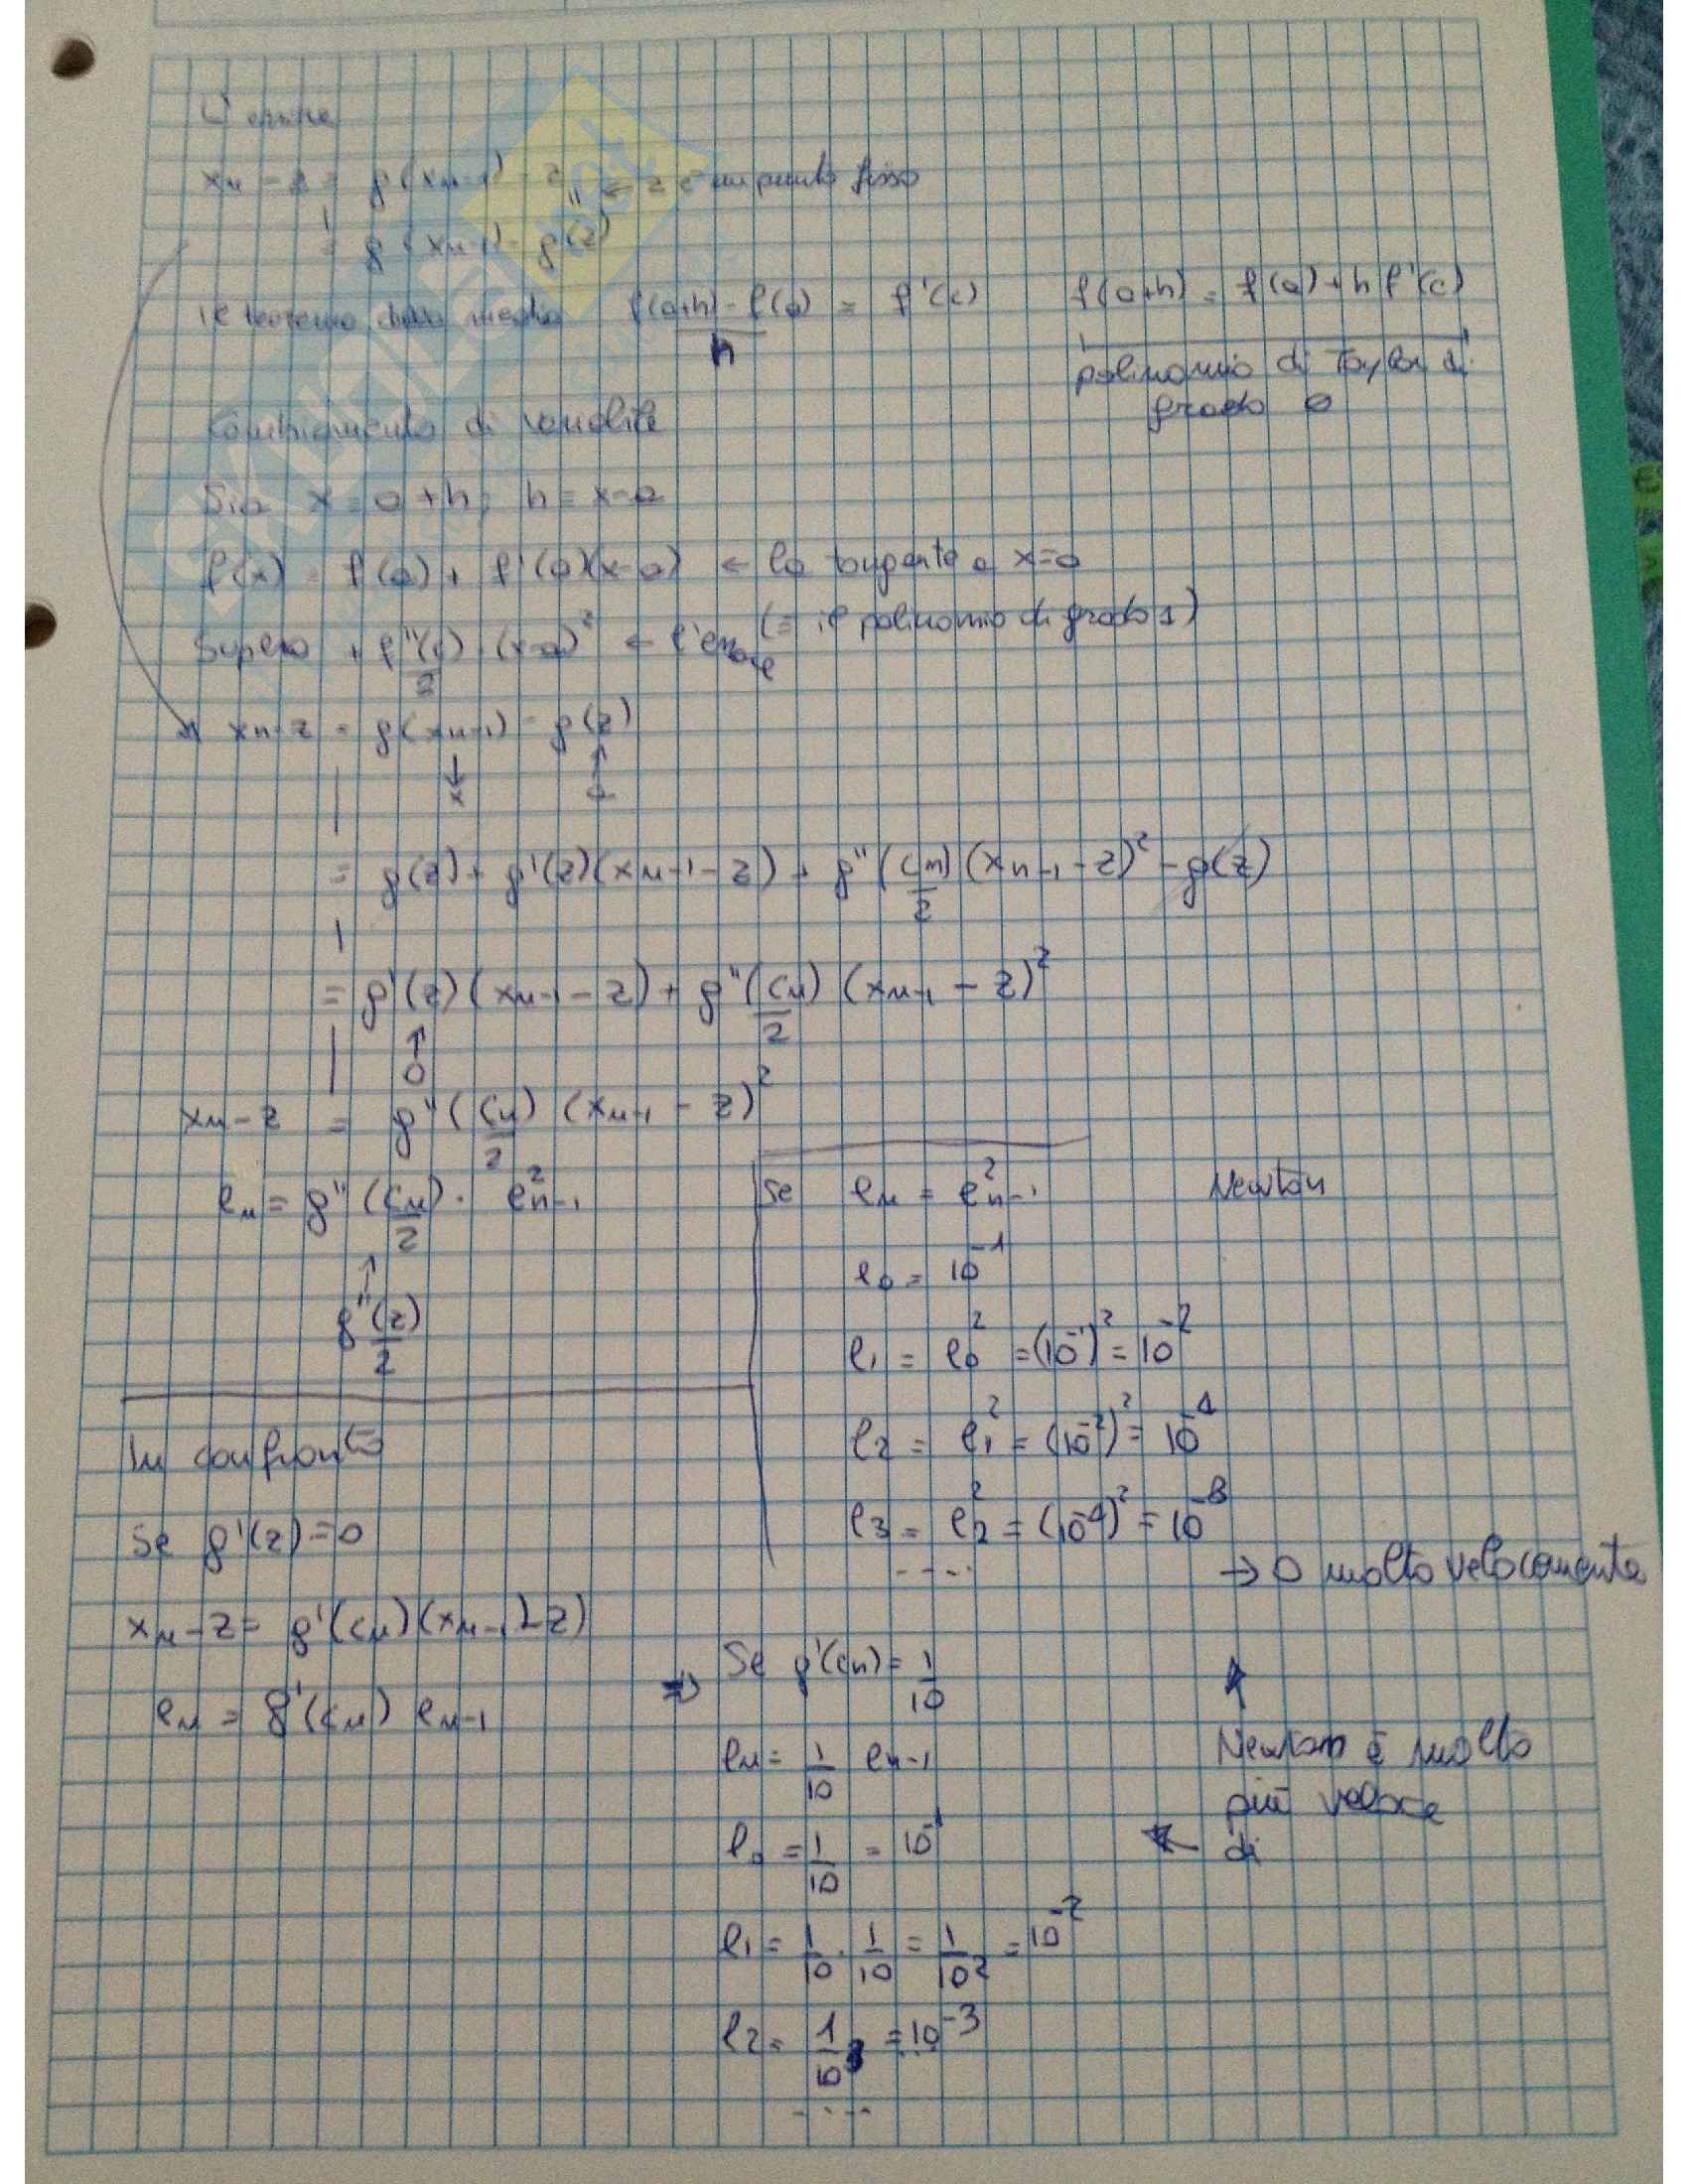 L'errore
xn - z = g(xn-1) - z ← z è un punto fisso
= g(xn-1) - g(z)
il teorema della media f(a+h) - f(a) / h = f'(c) f(a+h) = f(a) + h f'(c)
polinomio di Taylor di
grado 0
Cambiamento di variabile
Sia x = a + h, h = x-a
f(x) = f(a) + f'(a)(x-a) ← la tangente a x=a
(= il polinomio di grado 1)
+ f''(c)/2 (x-a)² ← l'errore
xn-z = g(xn-1) - g(z)
↓ ↑
x a
= g(z) + g'(z)(xn-1 - z) + g''(cn)/2 (xn-1 - z)² - g(z)
= g'(z)(xn-1 - z) + g''(cn)/2 (xn-1 - z)²
↑
0
xn - z = g''(cn)/2 (xn-1 - z)²
en = g''(cn)/2 · e²n-1
↑
g''(z)/2
Se en = e²n-1 Newton
e0 = 10⁻¹
e1 = e0² = (10⁻¹)² = 10⁻²
e2 = e1² = (10⁻²)² = 10⁻⁴
e3 = e2² = (10⁻⁴)² = 10⁻⁸
....
→ 0 molto velocemente
↑
Newton è molto
più veloce
← di
In confronto
Se g'(z) = 0
xn - z = g'(cn)(xn-1 - z)
en = g'(cn) en-1
⇒ Se g'(cn) = 1/10
en = 1/10 en-1
e0 = 1/10 = 10⁻¹
e1 = 1/10 · 1/10 = 1/10² = 10⁻²
e2 = 1/10³ = 10⁻³
....